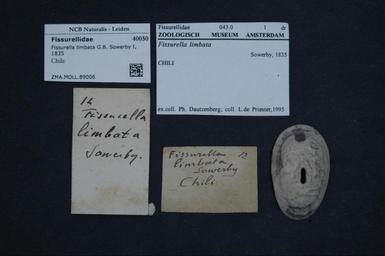 NCB Naturalis - Leiden
Fissurellidae 40050
Fissurella limbata G.B. Sowerby I,
1835
Chile
ZMA.MOLL.89006
Fissurellidae 043.0 1 dr
ZOOLOGISCH MUSEUM AMSTERDAM
Fissurella limbata
Sowerby, 1835
CHILI
ex.coll. Ph. Dautzenberg; coll. L.de Priester,1995
12
Fissurella
limbata
Sowerby.
Fissurella 12
limbata
Sowerby
Chili